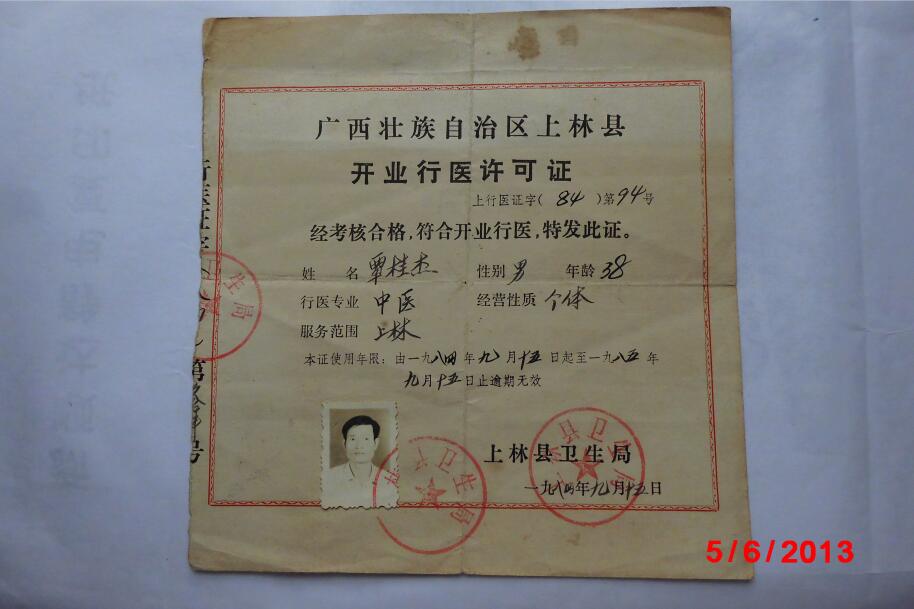 广西壮族自治区上林县
开业行医许可证
上行医证字(84)第94号
经考核合格,符合开业行医,特发此证。
姓名 覃桂杰 性别 男 年龄 38
行医专业 中医 经营性质 个体
服务范围 上林
本证使用年限:由一九八四年九月十五日起至一九八五年
九月十五日止逾期无效
上林县卫生局
一九八四年九月十五日
上林县卫生局
县卫生局
生局
行医证字
第
号
5/6/2013